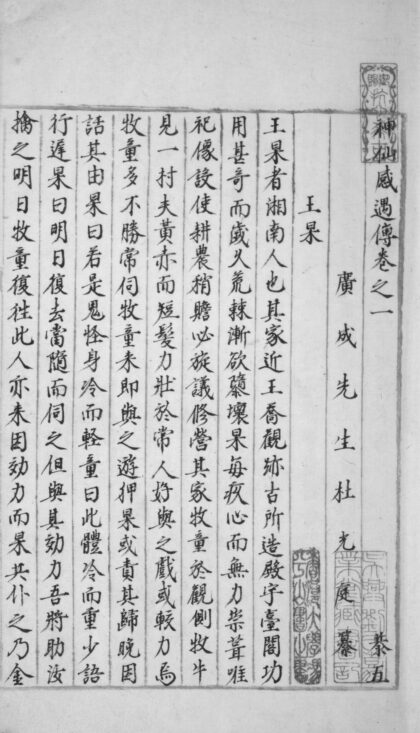 神仙感遇傳卷之一
廣成先生杜光庭纂 恭五
王杲
王杲者湘南人也其家近王喬觀跡古所造殿宇臺閣功
用甚奇而歲久荒棘漸欲隳壞杲每疚心而無力崇葺唯
祀像設使耕農稍贍必旋議修營其家牧童於觀側牧牛
見一村夫黃赤而短髮力壯於常人好與之戲或較力焉
牧童多不勝常伺牧童來即與之遊押杲或責其歸晚因
話其由杲曰若是鬼怪身冷而輕童曰此體冷而重少語
行遲杲曰明日復去當隨而伺之但與其効力吾將助汝
擒之明日牧童復往此人亦来因効力而果共仆之乃金